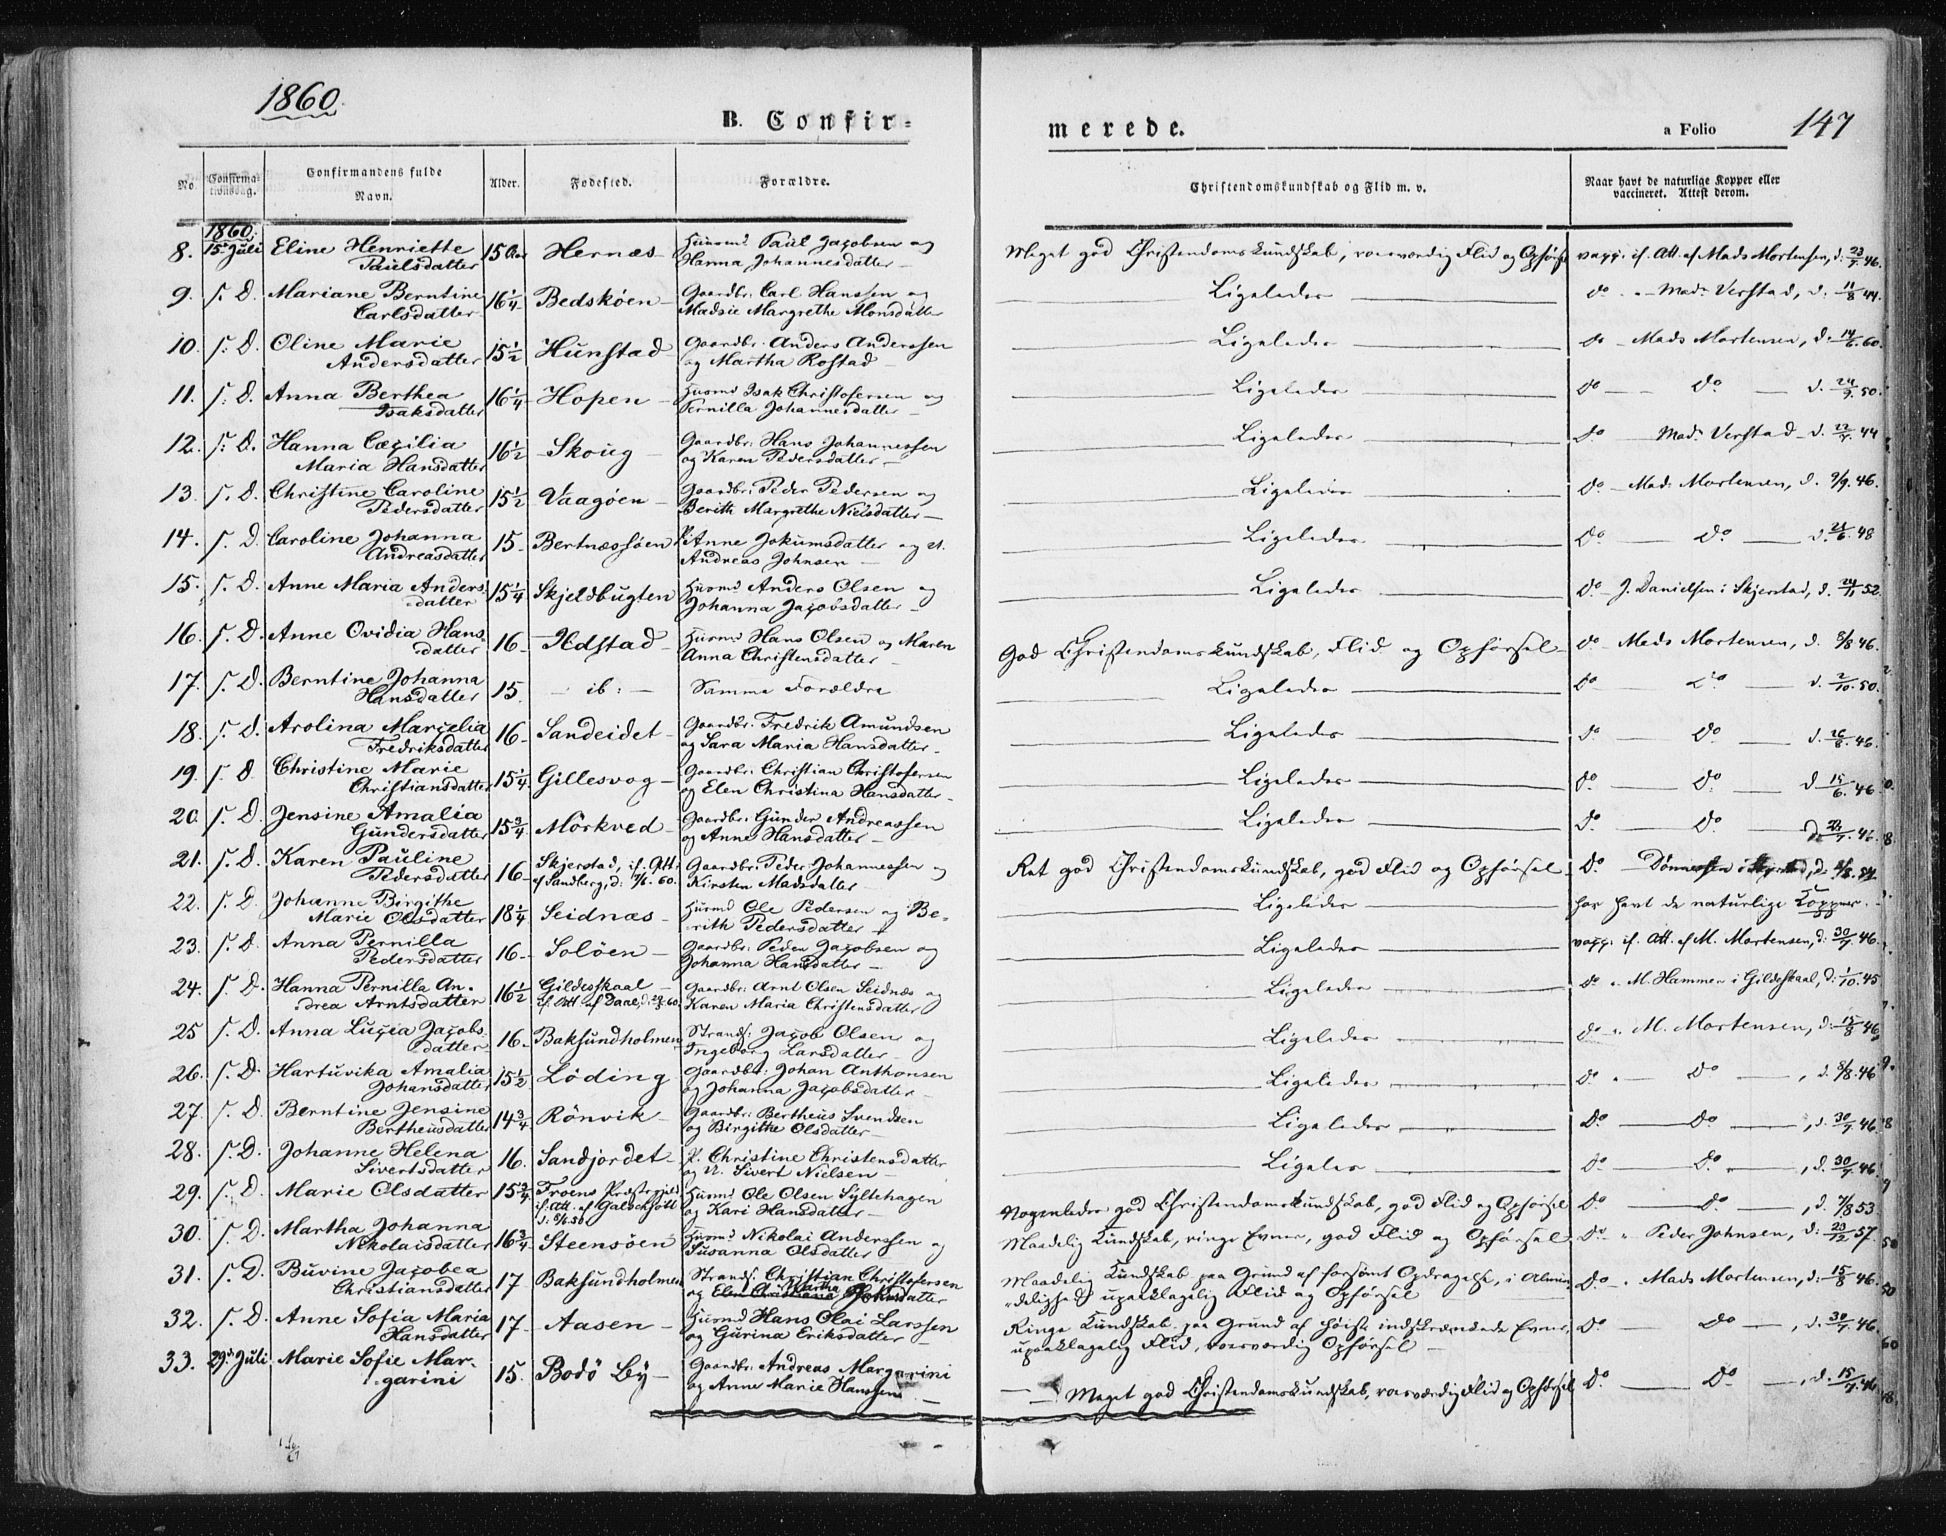 1860.
B. Confir-
merede.
a Folio 147
No. Confirmationsdag. Confirmandens fulde Navn. Alder. Fødested. Forældre. Christendomskundskab og Flid m. v. Naar havt de naturlige Kopper eller vaccineret. Attest derom.
1860.
8. 15de Juli Eline Henriette 15 Aar Hernæs Huusmd Paul Jacobsen og Meget god Christendomskundskab, rosværdig Flid og Opførsel vacc: if. Att. af Mads Mortensen, d. 23/7 46.
Paulsdatter Hanna Johannesdatter
9. s. D. Mariane Berntine 16 1/4 Bedskøen Gaardbr: Carl Hanssen og Ligeledes do Mad: Verstad, d. 11/8 44.
Carlsdatter Madsie Margrethe Monsdatter
10. s. D. Oline Marie 15 1/2 Hunstad Gaardbr: Anders Anderssen Ligeledes do Mads Mortensen, d. 14/6 60.
Andersdatter og Martha Rostad
11. s. D. Anna Berthea 16 1/4 Hopen Huusmd Isak Christofersen og Ligeledes do Do d. 24/9 50.
Isaksdatter Pernilla Johannesdatter
12. s. D. Hanna Cæcilia 16 1/2 Skoug Gaardbr: Hans Johannessen Ligeledes do Mad: Verstad d. 22/7 44
Maria Hansdatter og Karen Pedersdatter
13. s. D. Christine Caroline 15 1/2 Vaagøen Gaardbr: Peder Pedersen og Ligeledes Do Mad: Mortensen, d. 9/9. 46.
Pedersdatter Berith Margrethe Nielsdatter
14. s. D. Caroline Johanna 15 Bertnæssøen P. Anne Jokumsdatter og U. Ligeledes Do Do d. 21/6. 48
Andreasdatter Andreas Johnsen
15. s. D. Anne Maria Anders- 15 1/4 Skjeldbugten Huusmd Anders Olsen og Ligeledes Do J. Danielsen i Skjerstad, d. 24/11 52.
datter Johanna Jacobsdatter
16. s. D. Anne Ovidia Hans- 16 Ildstad Huusmd Hans Olsen og Maren God Christendomskundskab, Flid og Opførsel Do Mads Mortensen, d. 8/8 46.
datter Anna Christensdatter
17. s. D. Berntine Johanna 15. ib: Samme Forældre Ligeledes Do Do d. 2/10. 50.
Hansdatter
18. s. D. Arolina Marcelia 16 Sandeidet Gaardbr: Fredrik Amundsen Ligeledes Do Do d. 26/8. 46.
Fredriksdatter og Sara Maria Hansdatter
19. s. D. Christine Marie 15 1/4 Gillesvog Gaardbr: Christian Christofersen Ligeledes Do. Do. d 15/6. 46
Christiansdatter og Elen Christina Hansdatter
20. s. D. Jensine Amalia 15 3/4 Mørkved Gaardbr: Gunder Andreassen Ligeledes Do. Do. 46.
Gundersdatter og Anne Hansdatter
21. s. D. Karen Pauline 16 Skjerstad, if. Att: Gaardbr: Peder Johannessen og Ret god Christendomskundskab, god Flid og Opførsel Do.
Pedersdatter af Sandberg, d: 7/6. 60. Kirsten Madsdatter
22. s. D. Johanne Birgithe 18 1/4 Seidnæs Huusmd Ole Pedersen og Be- Ligeledes har havt de naturlige Kopper.
Marie Olsdatter rith Pedersdatter
23. s. D. Anna Pernilla 16 Soløen Gaardbr: Peder Jacobsen og Ligeledes vacc: if. Att. af M. Mortensen, d. 30/7. 46.
Pedersdatter Johanna Hansdatter
24. s. D. Hanna Pernilla An- 16 1/2 Gildeskaal Gaardbr: Arnt Olsen Seidnæs og Ligeledes Do M. Hammer i Gildeskaal, d. 1/10. 45
drea Arntsdatter if. Att. af Daae, d. 60. Karen Maria Christensdatter
25 s. D. Anna Lucia Jacobs- 16. Baksundholmen Strands: Jacob Olsen og Ligeledes do M. Mortensen, d. 15/8 46
datter Ingeborg Larsdatter
26. s. D. Hartuvika Amalia 15 1/2 Løding Gaardbr: Johan Anthonsen Ligeledes Do. Do , d. 8/8. 46
Johansdatter og Johanna Jacobsdatter
27. s. D. Berntine Jensine 14 3/4 Rønvik Gaardbr: Bertheus Svendsen Ligeledes Do Do , d. 30/7. 46.
Bertheusdatter og Birgithe Olsdatter
28. s. D. Johanne Helena 16. Sandjordet P. Christine Christensdatter Ligeles Do Do , d. 30/7. 46.
Sivertsdatter og U. Sivert Nielsen
29. s. D. Marie Olsdatter 15 3/4 Froens Præstegjeld Huusmd Ole Olsen Syltehagen Nogenledes god Christendomskundskab, god Flid og Opførsel Do Do , d. 7/8 53.
if. Att. af og Kari Hansdatter
30. s. D. Martha Johanna 16 3/4 Steensøen Huusmd Nikolai Anderssen og Maadelig Kundskab, ringe Evner, god Flid og Opførsel Do. Peder Johnsen, d. 23/12 57.
Nikolaisdatter Susanna Olsdatter
31. s. D. Buvine Jacobea 17 Baksundholmen Strands. Christian Christofersen Maadelig Kundskab paa Grund af forsømt Opdragelse, i Almin- Do Mads Mortensen, d. 15/8 46.
Christiansdatter og Elen Christiana Martha datter delighed upaaklagelig Flid og Opførsel
32. s. D. Anne Sofia Maria 17 Aasen Huusmd Hans Olai Larssen Ringe Kundskab paa Grund af høist indskrænkede Evner, Do. Do , d. 30/7. 46.
Hansdatter og Gurina Eriksdatter upaaklagelig Flid, rosværdig Opførsel
33. 29de Juli Marie Sofie Mar- 15. Bodø By Gaardbr: Andreas Margarini Meget god Christendomskundskab, rosværdig Flid og Opførsel Do. Do. , d. 15/7. 46
garini og Anne Marie Hanssen